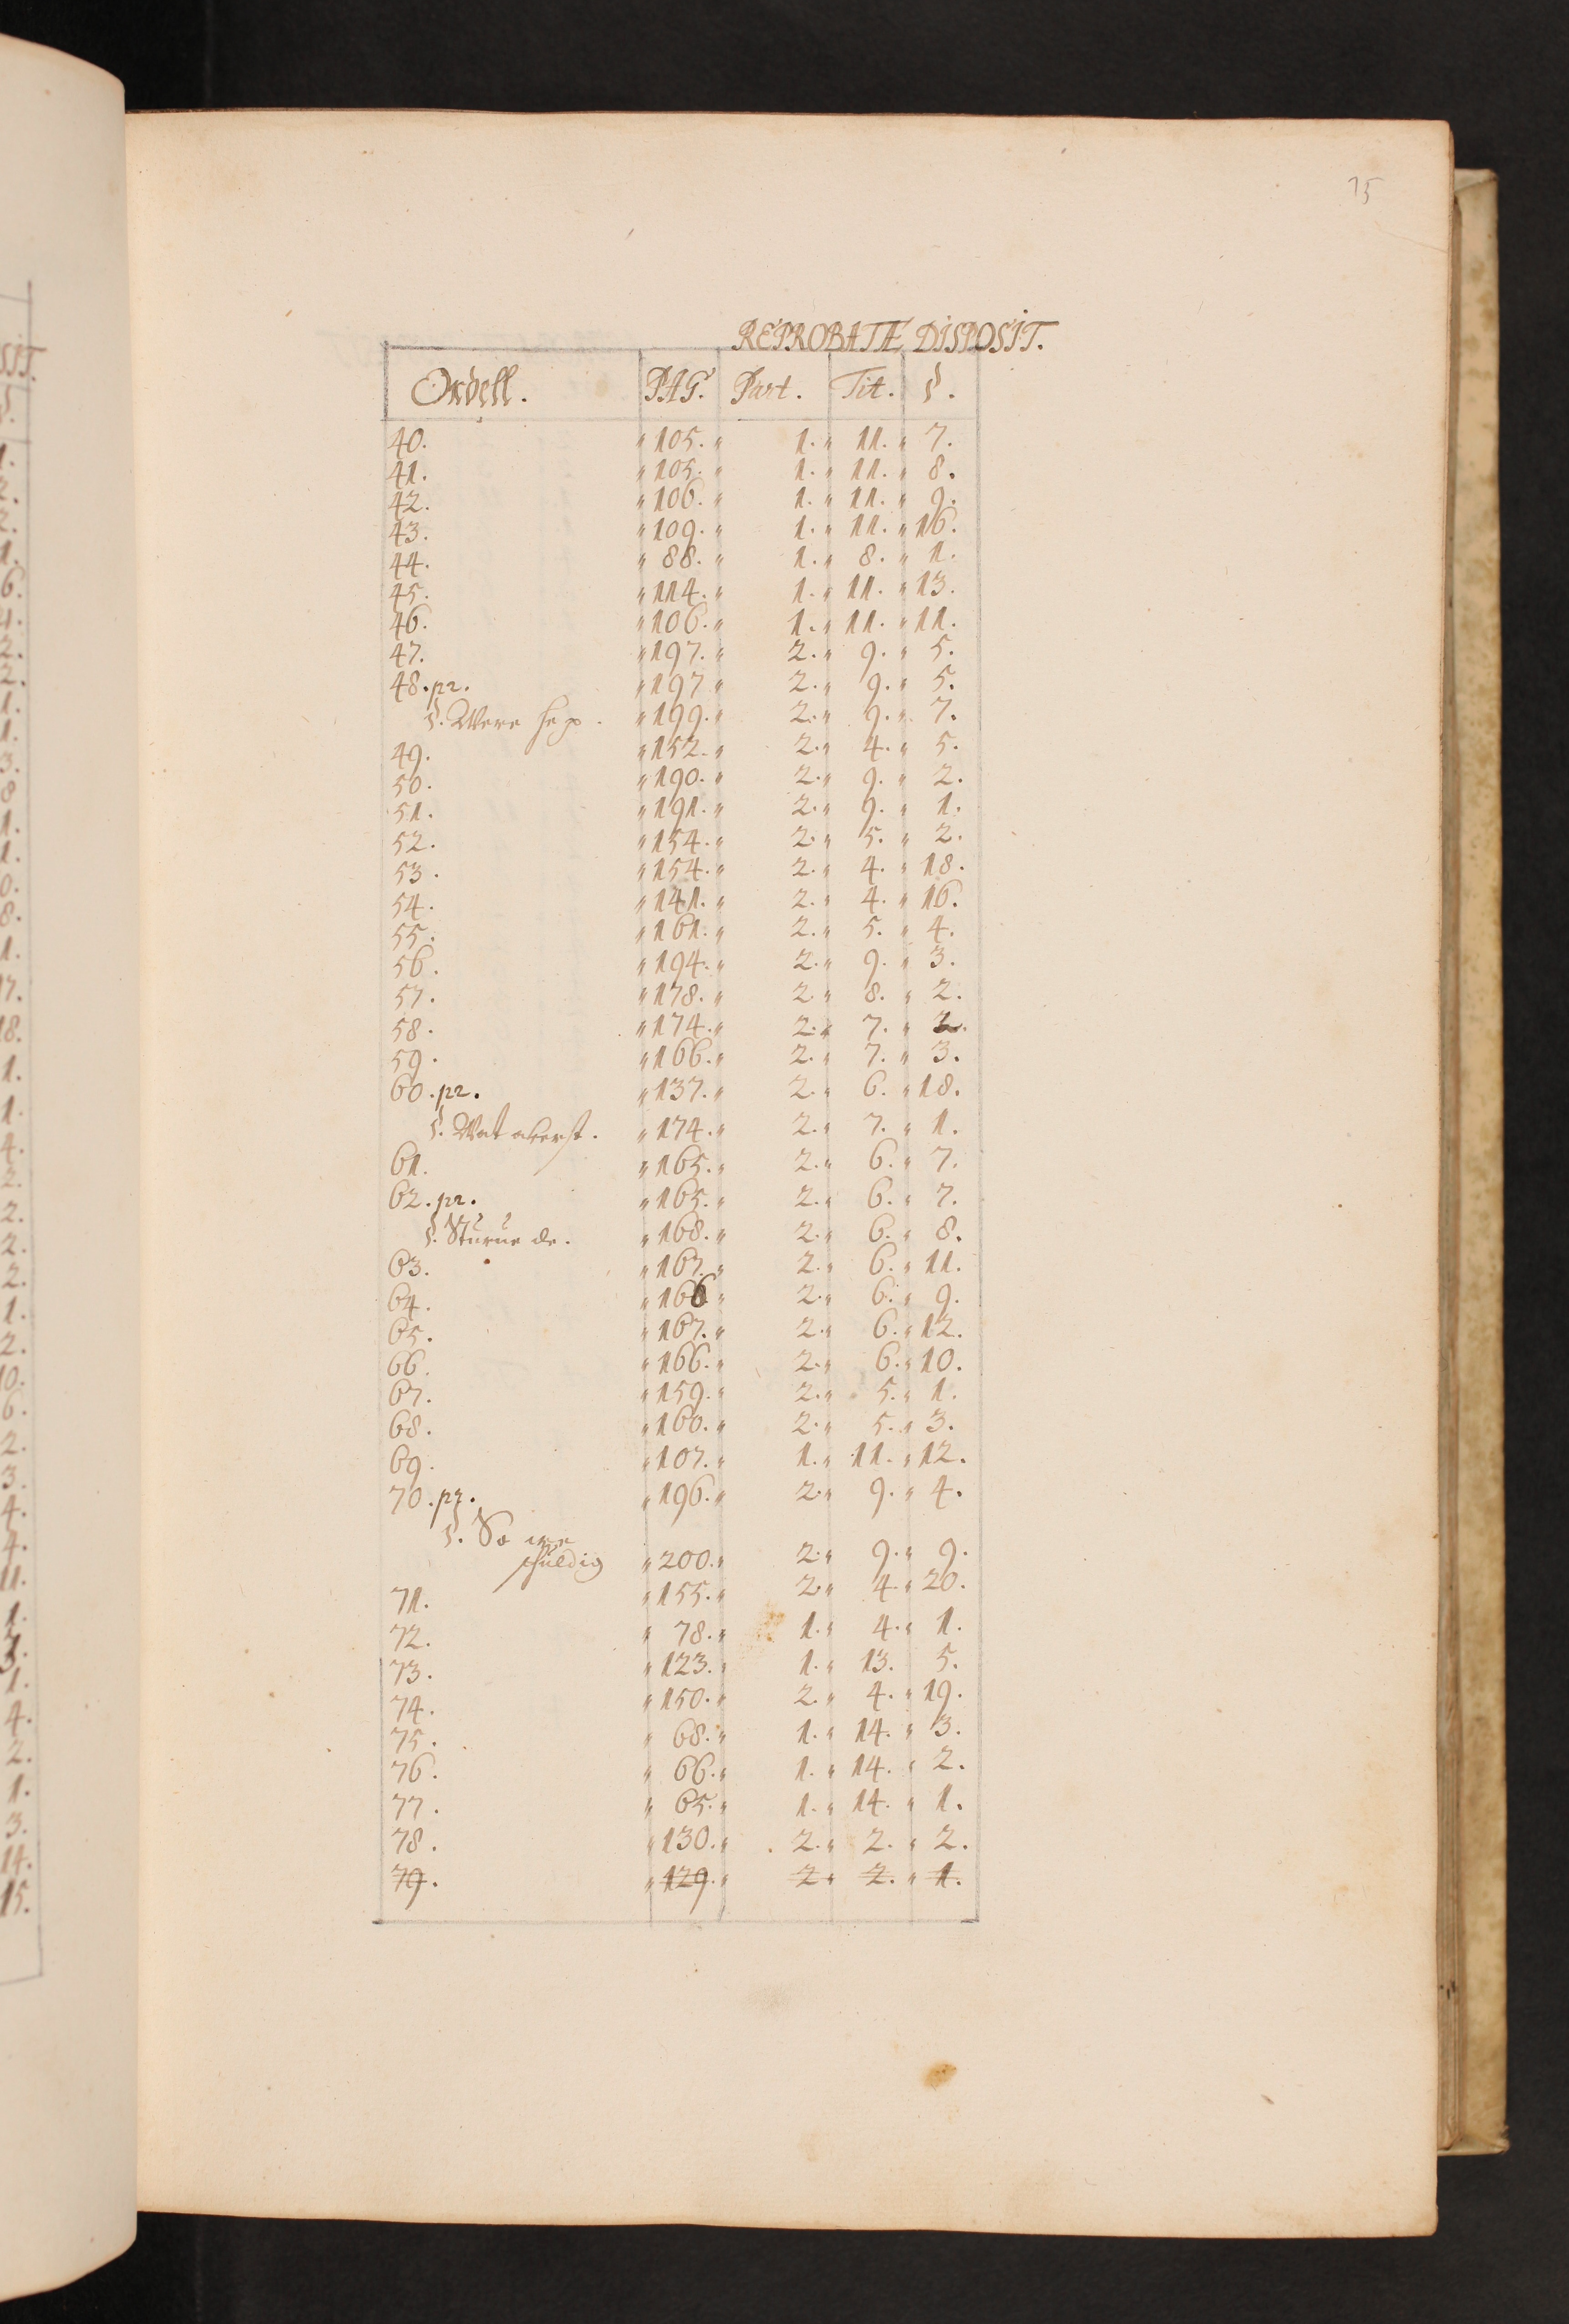 15
REPROBATÆ DISPOSIT.
Ordell. PAG. Part. Tit. §.
40. " 105. " 1. " 11. " 7.
41. " 105. " 1. " 11. " 8.
42. " 106. " 1. " 11. " 9.
43. " 109. " 1. " 11. " 16.
44. " 88. " 1. " 8. " 1.
45. " 114. " 1. " 11. " 13.
46. " 106. " 1. " 11. " 11.
47. " 197. " 2. " 9. " 5.
48. pr. " 197 " 2. " 9. " 5.
§. Were " 199. " 2. " 9. " 7.
49. " 152. " 2. " 4. " 5.
50. " 190. " 2. " 9. " 2.
51. " 191. " 2. " 9. " 1.
52. " 154. " 2. " 5. " 2.
53. " 154. " 2. " 4. " 18.
54. " 141. " 2. " 4. " 16.
55. " 161. " 2. " 5. " 4.
56. " 194. " 2. " 9. " 3.
57. " 178. " 2. " 8. " 2.
58. " 174. " 2. " 7. " 2.
59. " 166. " 2. " 7. " 3.
60. pr. " 137. " 2. " 6. " 18.
§. Wat averst. " 174. " 2. " 7. " 1.
61. " 165. " 2. " 6. " 7.
62. pr. " 165. " 2. " 6. " 7.
§. Sturve de. " 168. " 2. " 6. " 8.
63. " 167. " 2. " 6. " 11.
64. " 166 " 2. " 6. " 9.
65. " 167. " 2. " 6. " 12.
66. " 166. " 2. " 6. " 10.
67. " 159. " 2. " 5. " 1.
68. " 160. " 2. " 5. " 3.
69. " 107. " 1. " 11. " 12.
70. pr. " 196. " 2. " 9. " 4.
§. So we
schuldig " 200. " 2. " 9. " 9.
71. " 155. " 2. " 4. " 20.
72. " 78. " 1. " 4. " 1.
73. " 123. " 1. " 13. 5.
74. " 150. " 2. " 4. " 19.
75. " 68. " 1. " 14. " 3.
76. " 66. " 1. " 14. " 2.
77. " 65. " 1. " 14. " 1.
78. " 130. " 2. " 2. " 2.
79. " 129. " 2 " 2. " 1.